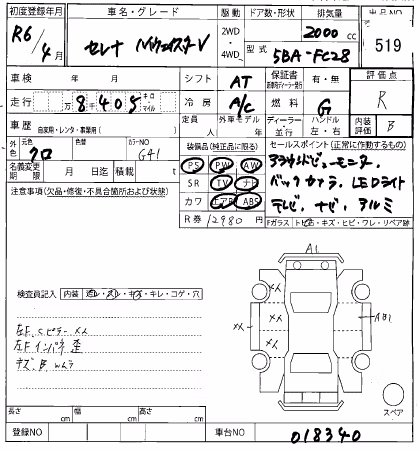 初度登録年月 車名・グレード 駆動 ドア数・形状 排気量 出品番号
R6/4月 セレナ ハイウェイスターV 2WD・4WD 2000cc 519
型式 5BA-FC28
車検 年 月 シフト AT 保証書 有・無 評価点
走行 万8405 キロ・マイル 冷房 A/C 燃料 G R
車歴 自家用・レンタ・事業用( ) 定員 人 外車モデル 年 ディーラー・並行 ハンドル 左・右 内装評価 B
外色 元色 クロ 色替 カラーNO G41
装備品(純正品に限る) セールスポイント(正常に作動するもの)
名義変更期限 月 日迄 積載 t
PS PW AW アラウンドビューモニター
SR TV ナビ バックカメラ、LEDライト
カワ エアB ABS テレビ、ナビ、アルミ
注意事項(欠品・修復・不具合箇所および状態)
R券 12980円 Fガラス トビ石・キズ・ヒビ・ワレ・リペア跡
A1
検査員記入 内装 キズ・キレ・コゲ・穴
左F.Cピラーメメ
左Fインパネ歪
メメ メメ メメ
長さ cm 幅 cm 高さ cm スペア
登録NO 車台NO 018340